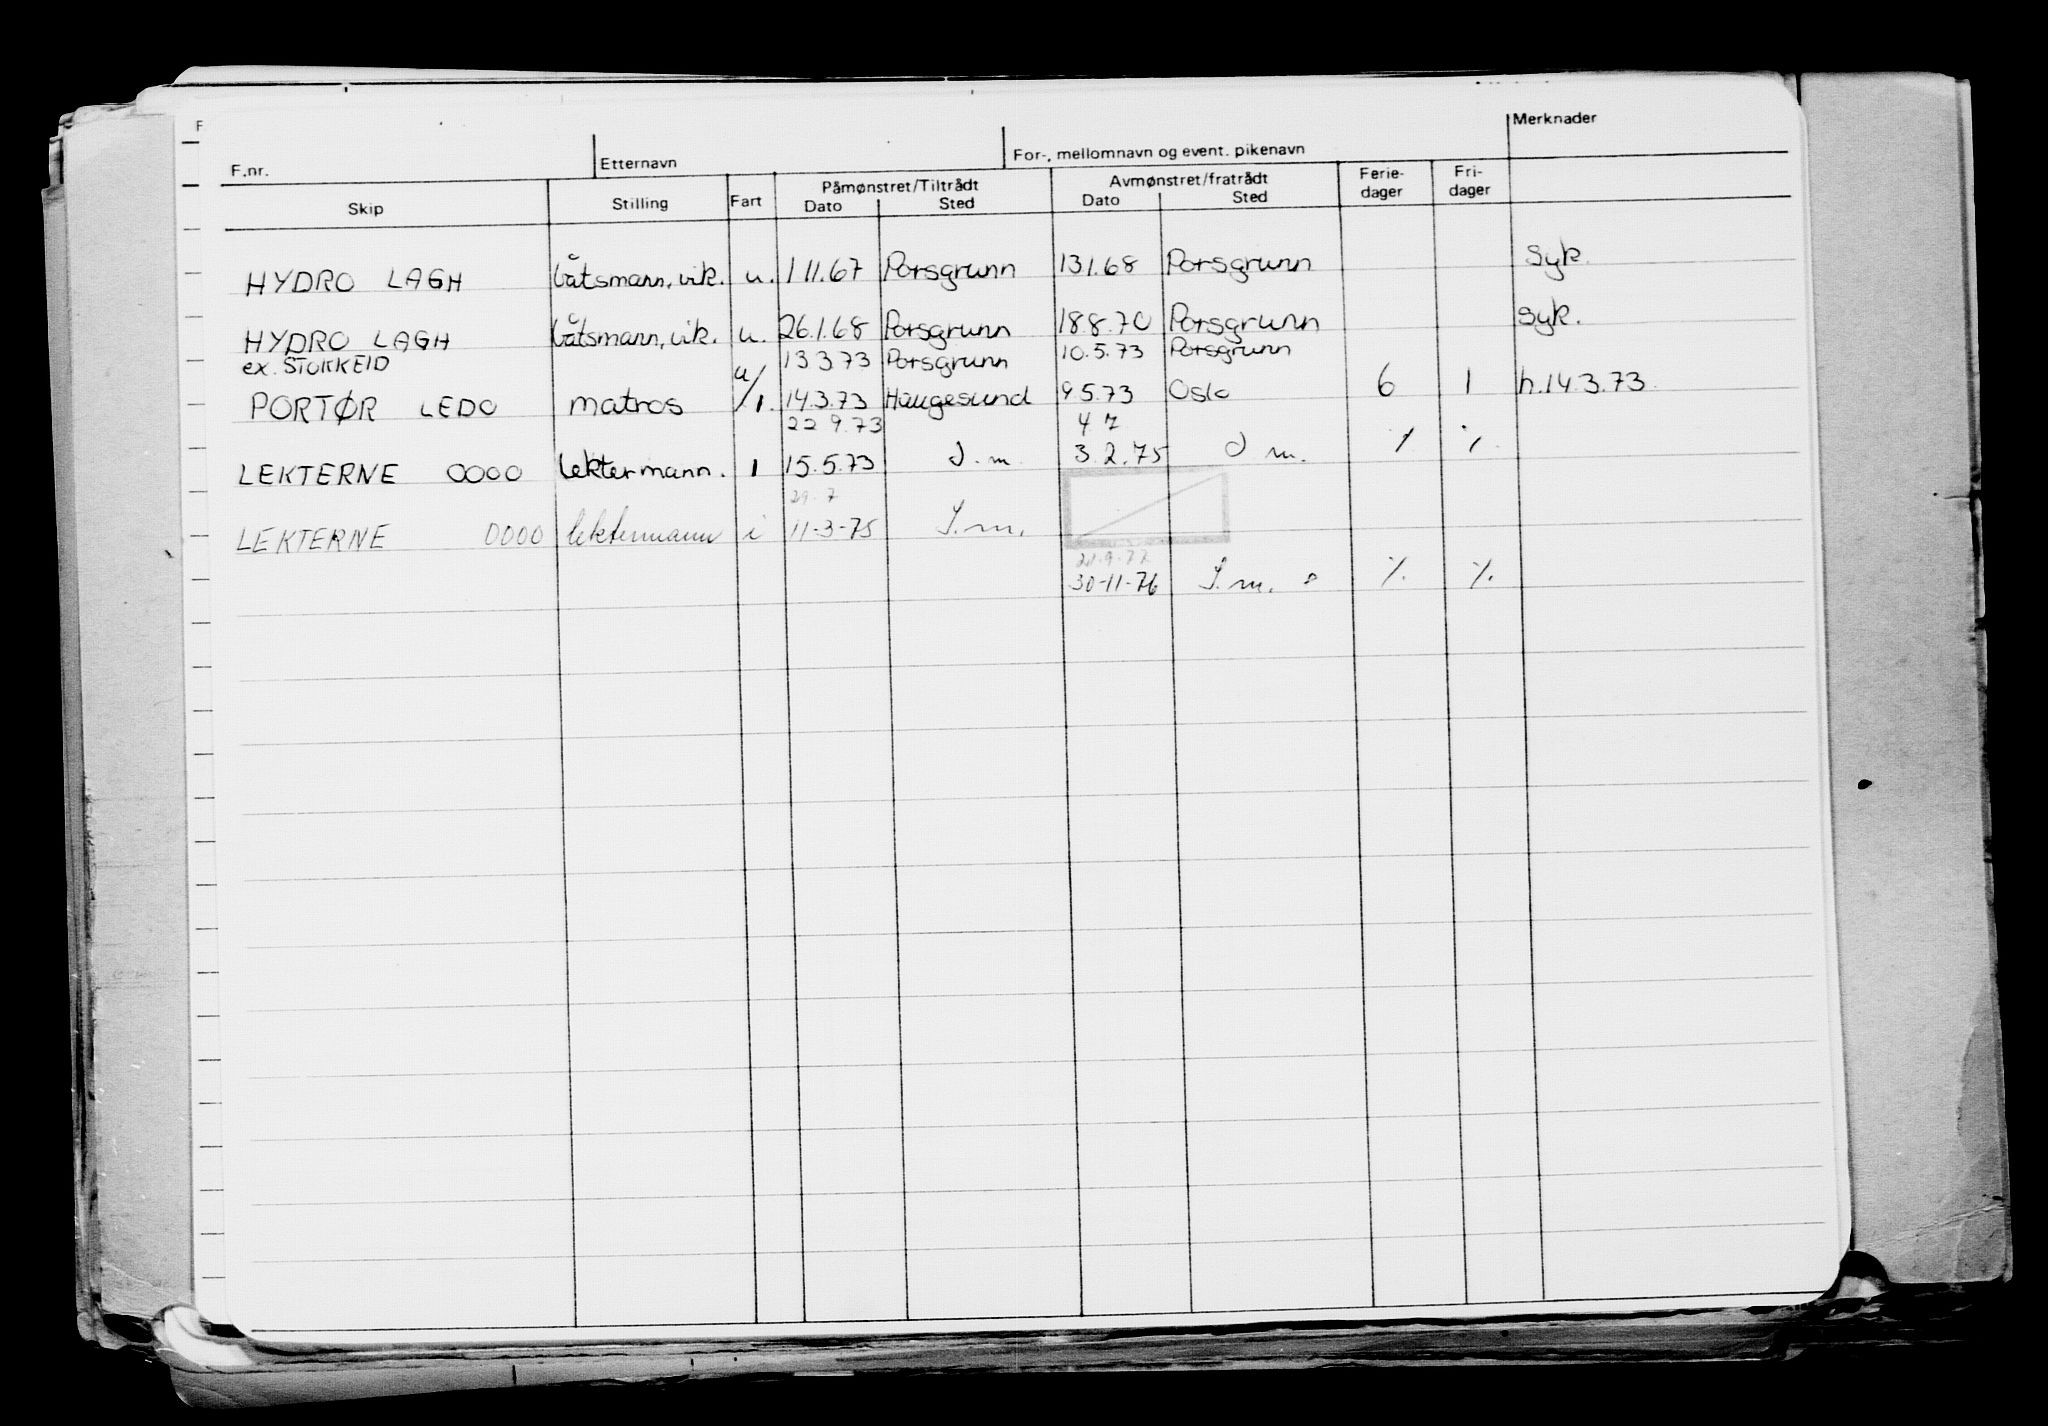 F
Merknader
F.nr. Etternavn For-, mellomnavn og event. pikenavn
Skip Stilling Fart Påmønstret/Tiltrådt Dato Sted Avmønstret/fratrådt Dato Sted Ferie-dager Fri-dager
HYDRO LAGH båtsmann, vik. u. 1 11.67 Porsgrunn 13 1.68 Porsgrunn Syk.
HYDRO LAGH båtsmann, vik. u. 26.1.68 Porsgrunn 18.8.70 Porsgrunn Syk.
ex. STOKKEID 13 3.73 Porsgrunn 10.5.73 Porsgrunn
PORTØR LEDO matros u/1. 14.3.73 Haugesund 9.5.73 Oslo 6 1 h.14.3.73
22 9.73 4 7
LEKTERNE 0000 lektermann. 1 15.5.73 I.m. 3.2.75 I m. % %
29.7
LEKTERNE 0000 lektermann i 11-3-75 I.m.
30-11-76 I.m. % %